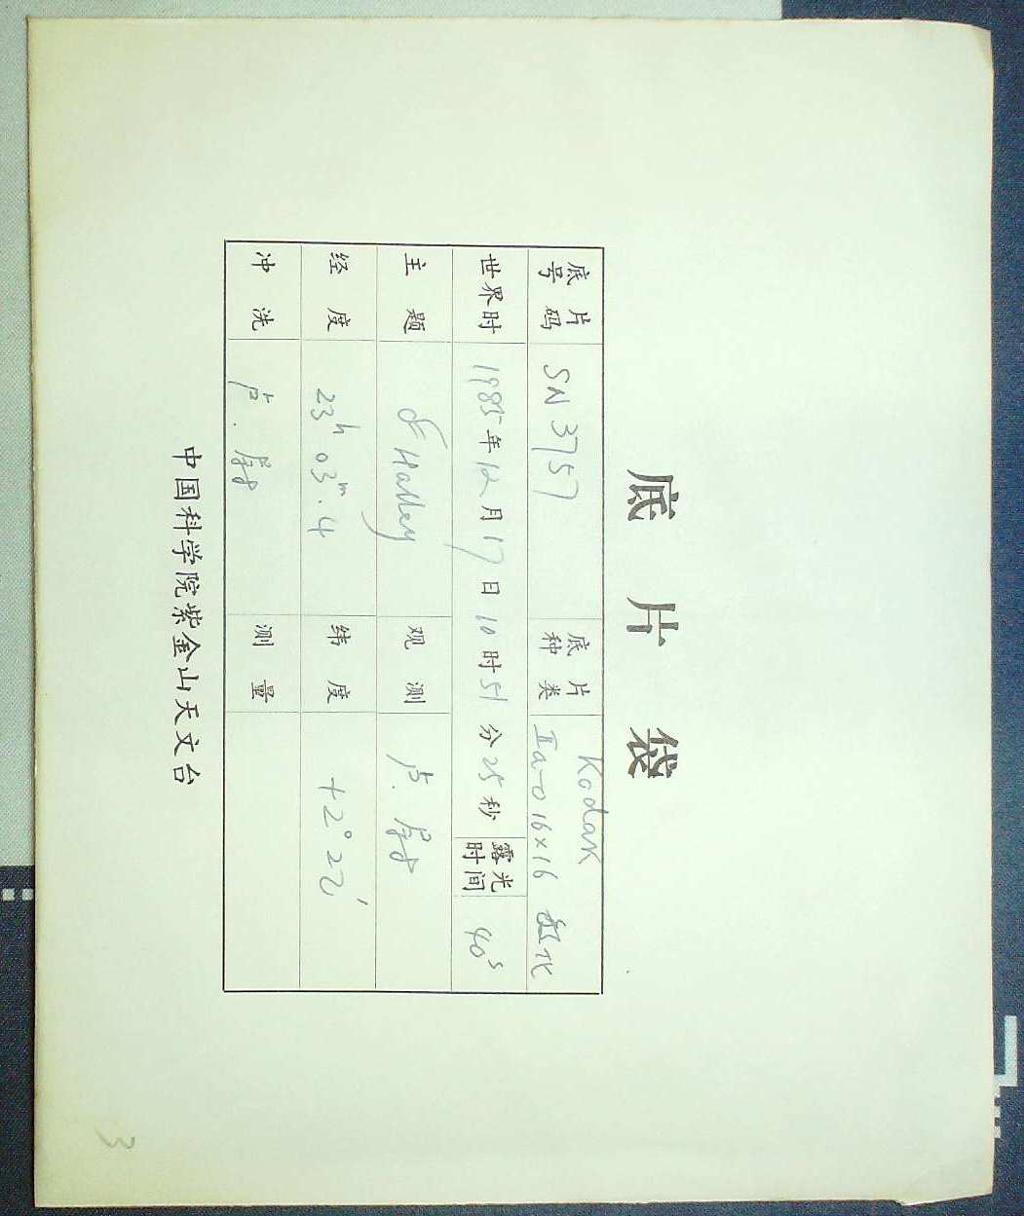 底片袋
底片号码 SN 3757 底片种类 Kodak IIa-O 16×16 敏化
世界时 1985年12月17日10时51分25秒 露光时间 40s
主题 Halley 观测 卢.
经度 23h 03m.4 纬度 +2° 22′
冲洗 卢. 测量
中国科学院紫金山天文台
3